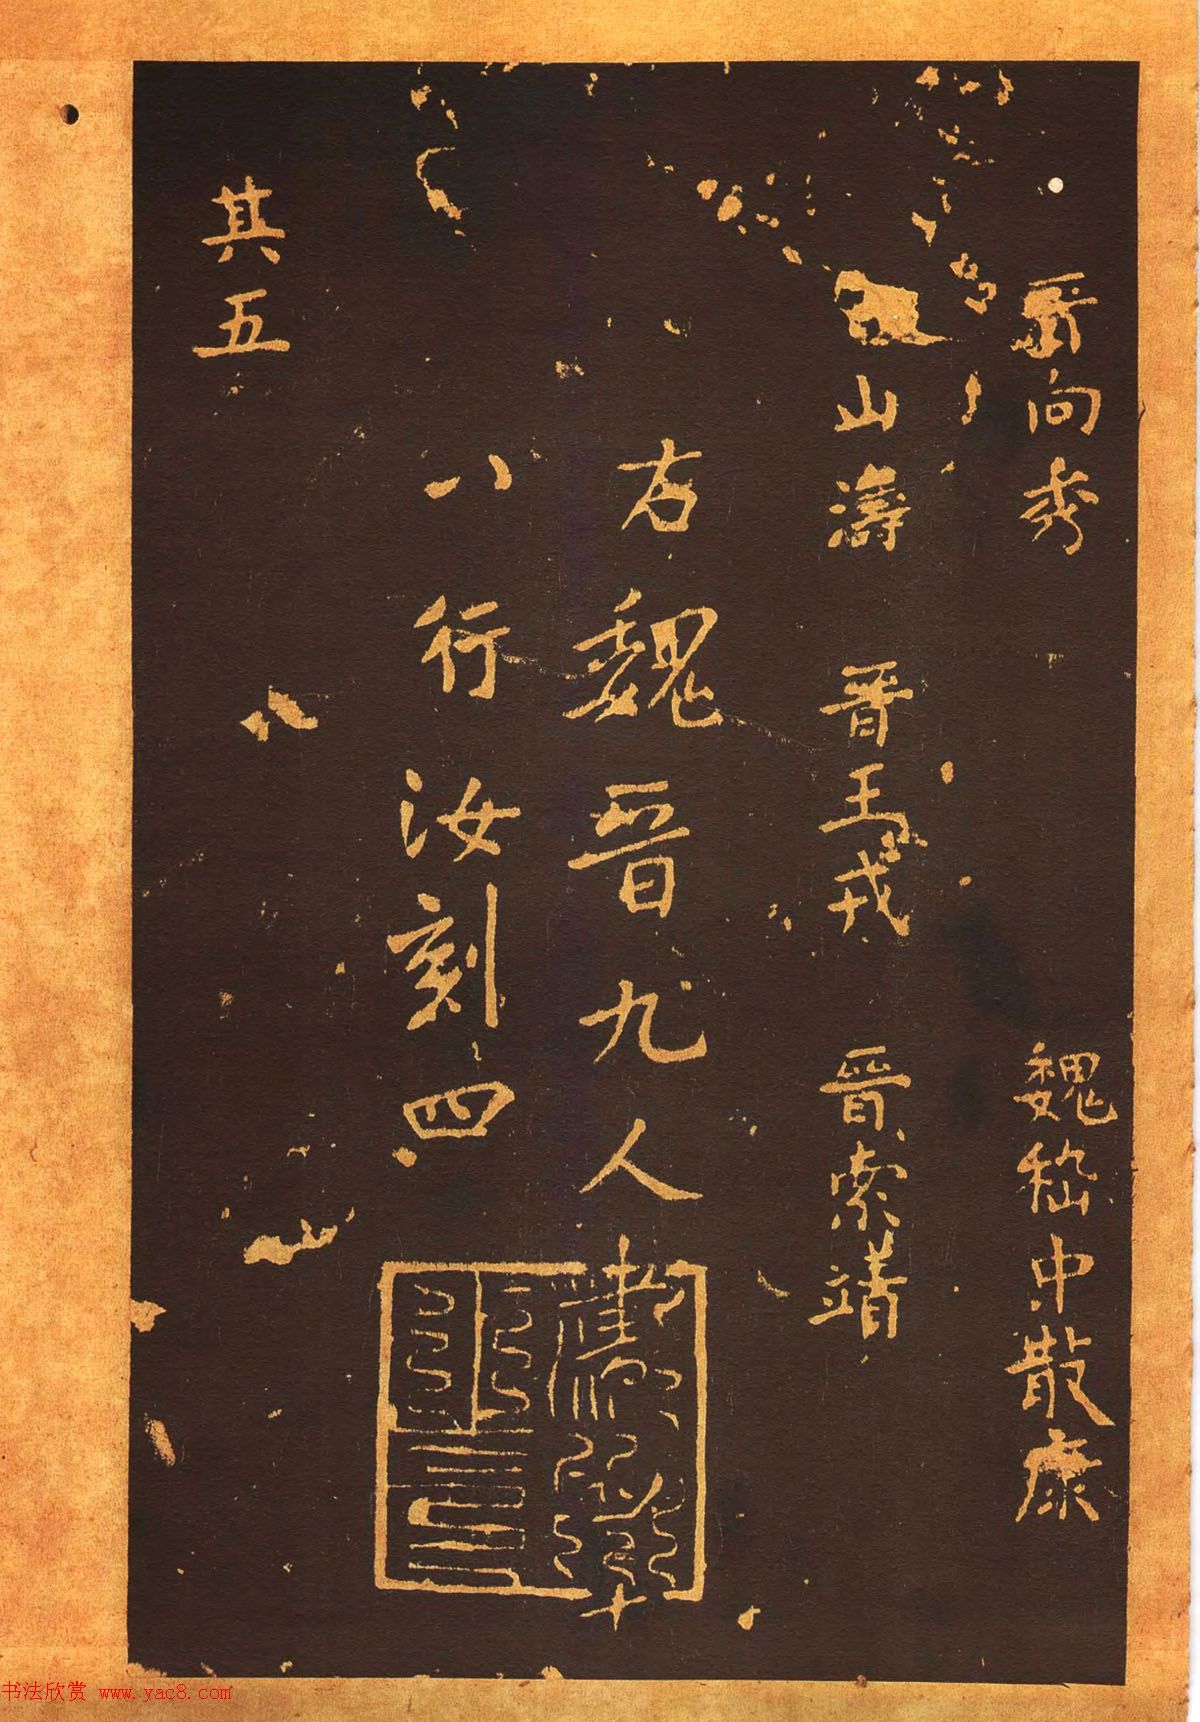 晉向秀 魏嵇中散康
山濤 晉王戎 晉索靖
右魏晉九人書
八十
八行汝刻四
其五
书法欣赏 www.yac8.com